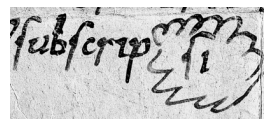 ſubſcripſi